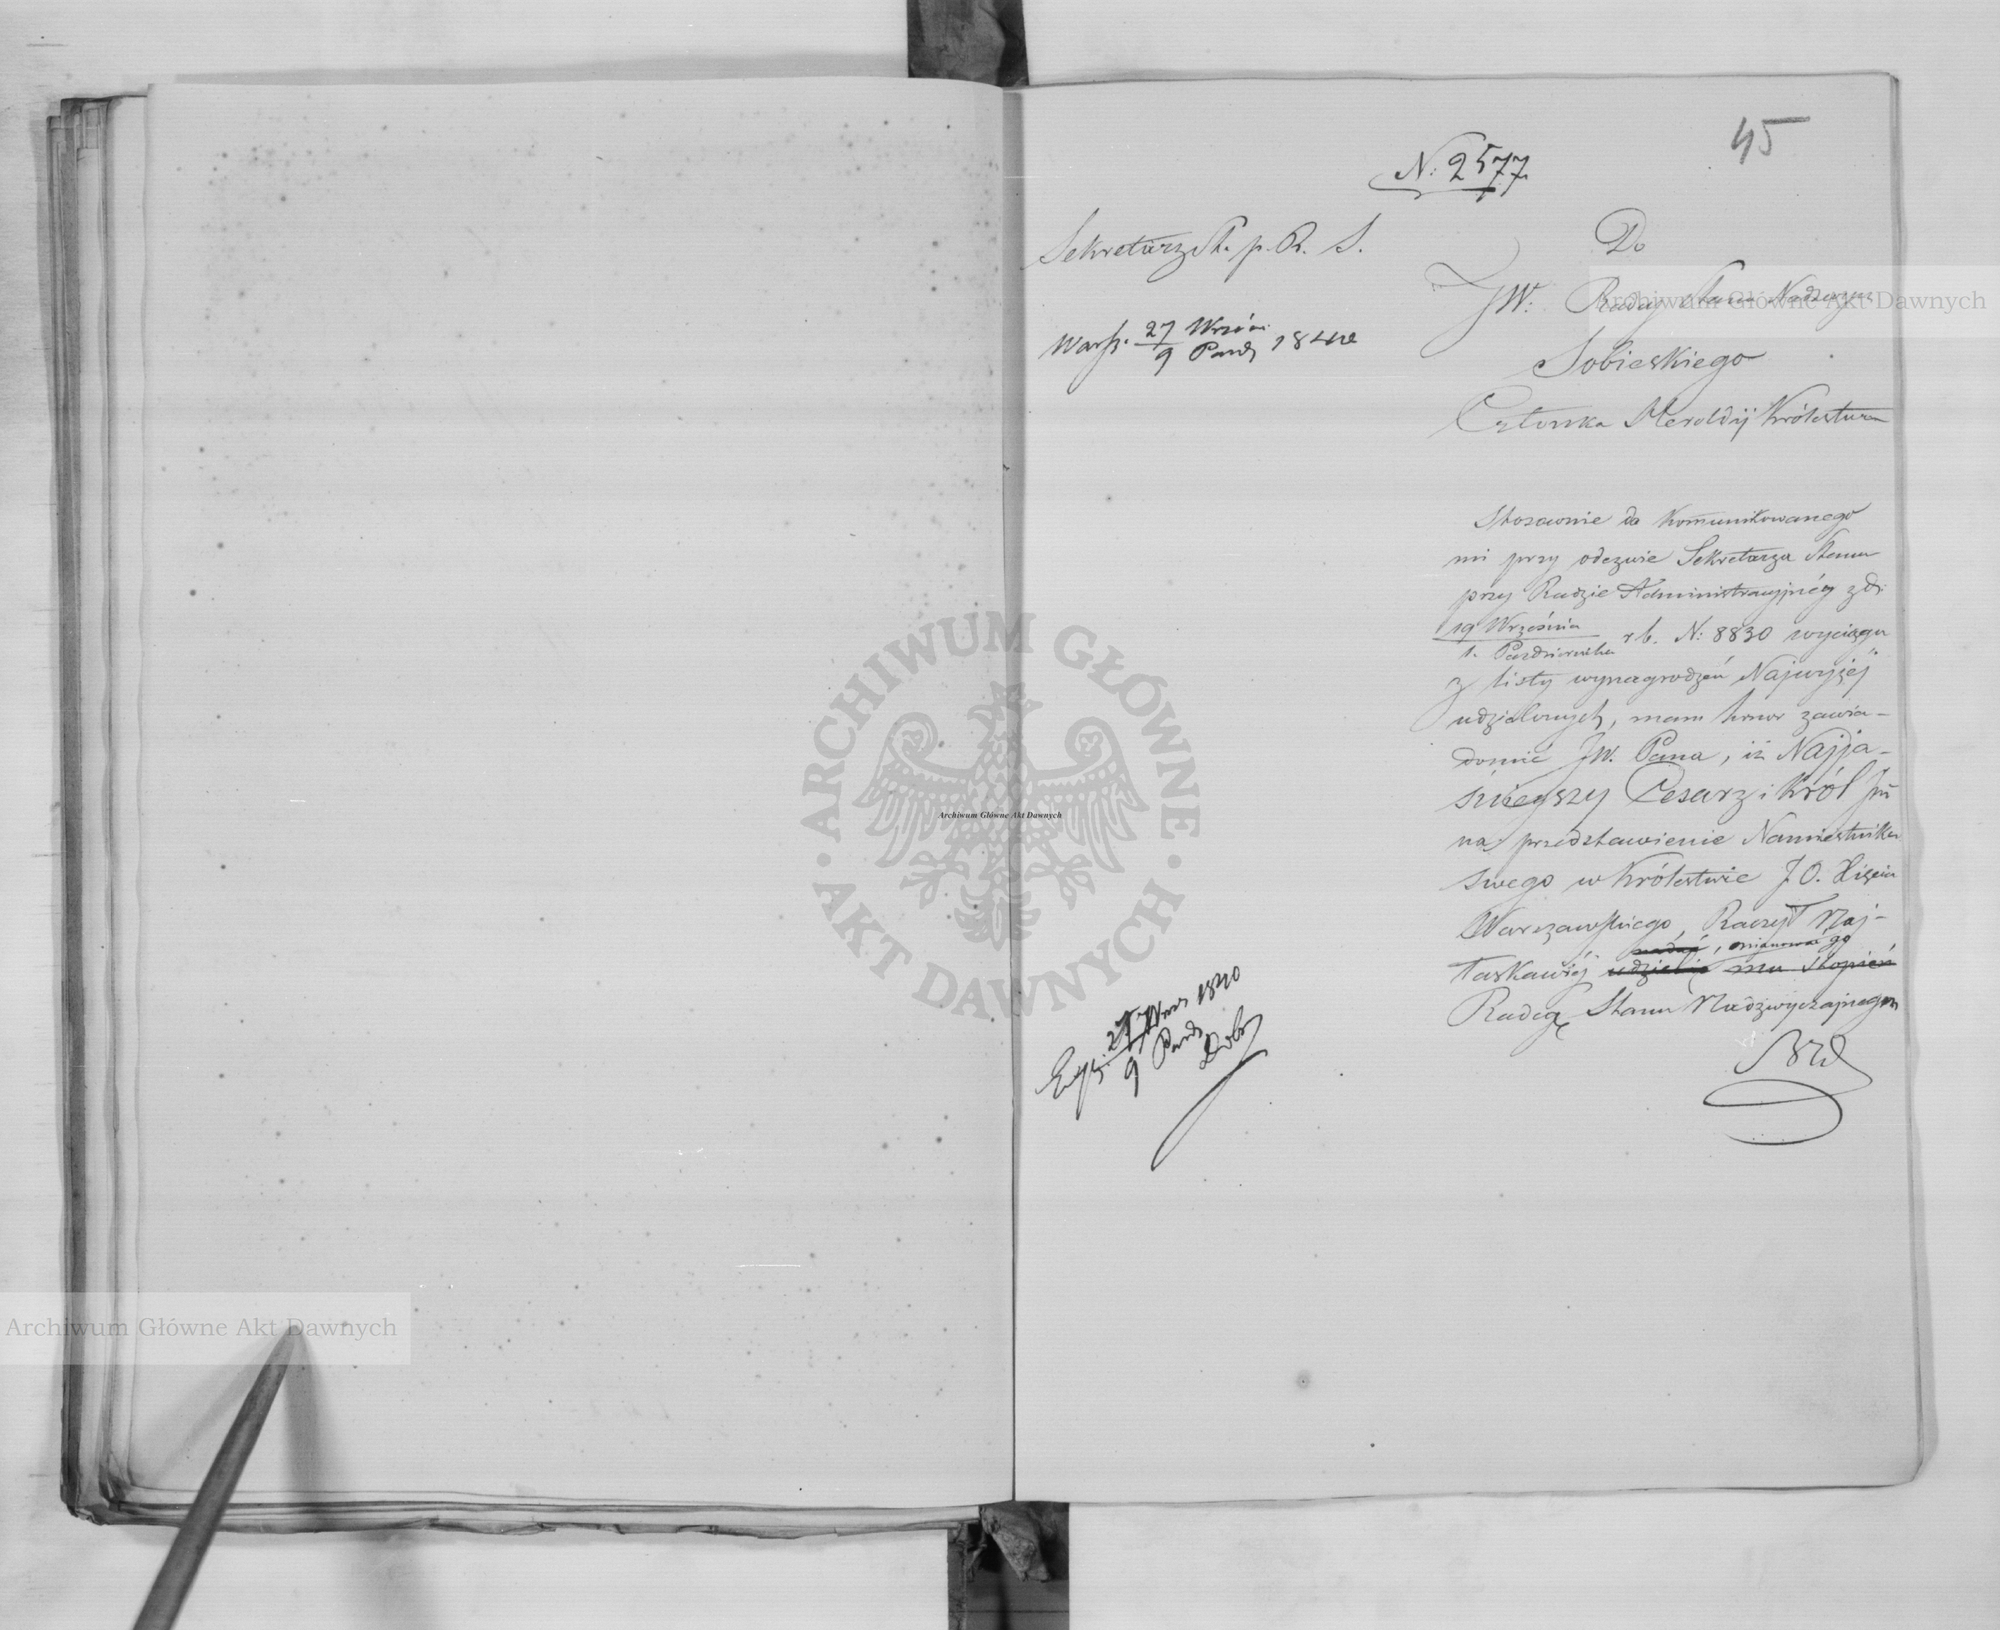 45
N: 2577
Sekretarz St. p. R. S.
Warsz. 27 Wrześ. / 9 Pazdz 1840
Do
JW. Radcy Stanu Nadzwycz
Sobieskiego
Członka Heroldyi Królestwa
Stosownie do kommunikowanego
mi przy odezwie Sekretarza Stanu
przy Radzie Administracyjnéy z d:
19 Września / 1. Października r b. N: 8830 wyciągu
z listy wynagrodzeń Najwyżéj
udzielonych, mam honor zawia-
domić JW. Pana, iż Najja-
śnieyszy Cesarz i Król
na przedstawienie Namiestnika
swego w Królestwie J.O. Xięcia
Warszawskiego, Raczył Naj-
nadać, mianować go
łaskawiéj udzielić mu stopień
Radcą Stanu Nadzwyczajnego
Exp. 27 Wrz 1840 / 9 Pazdz
Archiwum Główne Akt Dawnych
Archiwum Główne Akt Dawnych
Archiwum Główne Akt Dawnych
ARCHIWUM GŁÓWNE
· AKT DAWNYCH ·